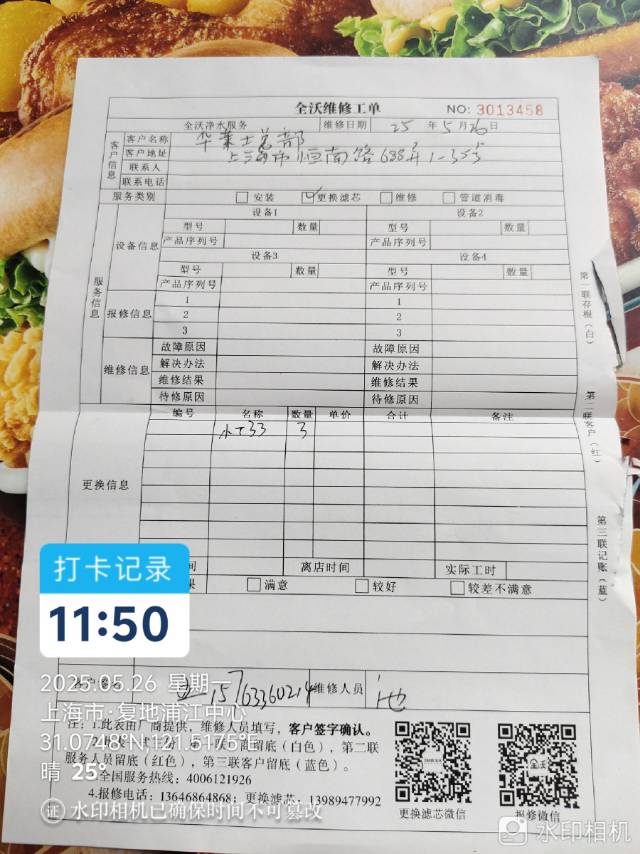 全沃维修工单
NO: 3013458
全沃净水服务 维修日期 25 年 5 月 26 日
客户信息
客户名称 华莱士总部
客户地址 上海市恒南路688弄1-35号
联系人
联系电话
服务类别 安装 更换滤芯 维修 管道消毒
服务信息
设备信息
设备1 设备2
型号 数量 型号 数量
产品序列号 产品序列号
设备3 设备4
型号 数量 型号 数量
产品序列号 产品序列号
报修信息
1 1
2 2
3 3
维修信息
故障原因 故障原因
解决办法 解决办法
维修结果 维修结果
待修原因 待修原因
更换信息
编号 名称 数量 单价 合计 备注
3
间 离店时间 实际工时
果 满意 较好 较差不满意
15763360214 维修人员
注：1.此表由厂商提供，维修人员填写，客户签字确认。
商留底（白色），第二联
服务人员留底（红色），第三联客户留底（蓝色）。
全国服务热线：4006121926
4.报修电话：13646864868；更换滤芯：13989477992
更换滤芯微信 报修微信
第一联存根（白）
第二联客户（红）
第三联记账（蓝）
打卡记录
11:50
2025.05.26 星期一
上海市·复地浦江中心
31.0748°N,121.5175°E
晴 25°
证 水印相机已确保时间不可篡改
水印相机